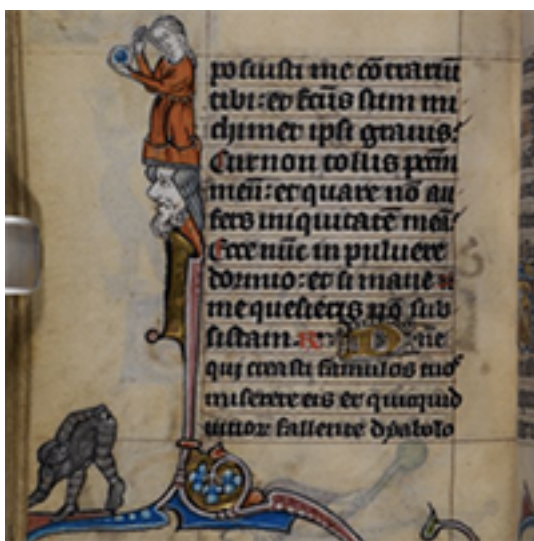 posuisti me cōtrariū
tibi: et fctūs sum mi
chimet ipsi grauis:
Cur non tollis pccm
meū: et quare nō au
fers iniquitatē meā:
Ecce nūc in puluere
dormio: et si mane
me quesieris nō sub
sistam. Dne
qui creasti famulos tuos
miserere eis et quicquid
uitior fallente dyabolo